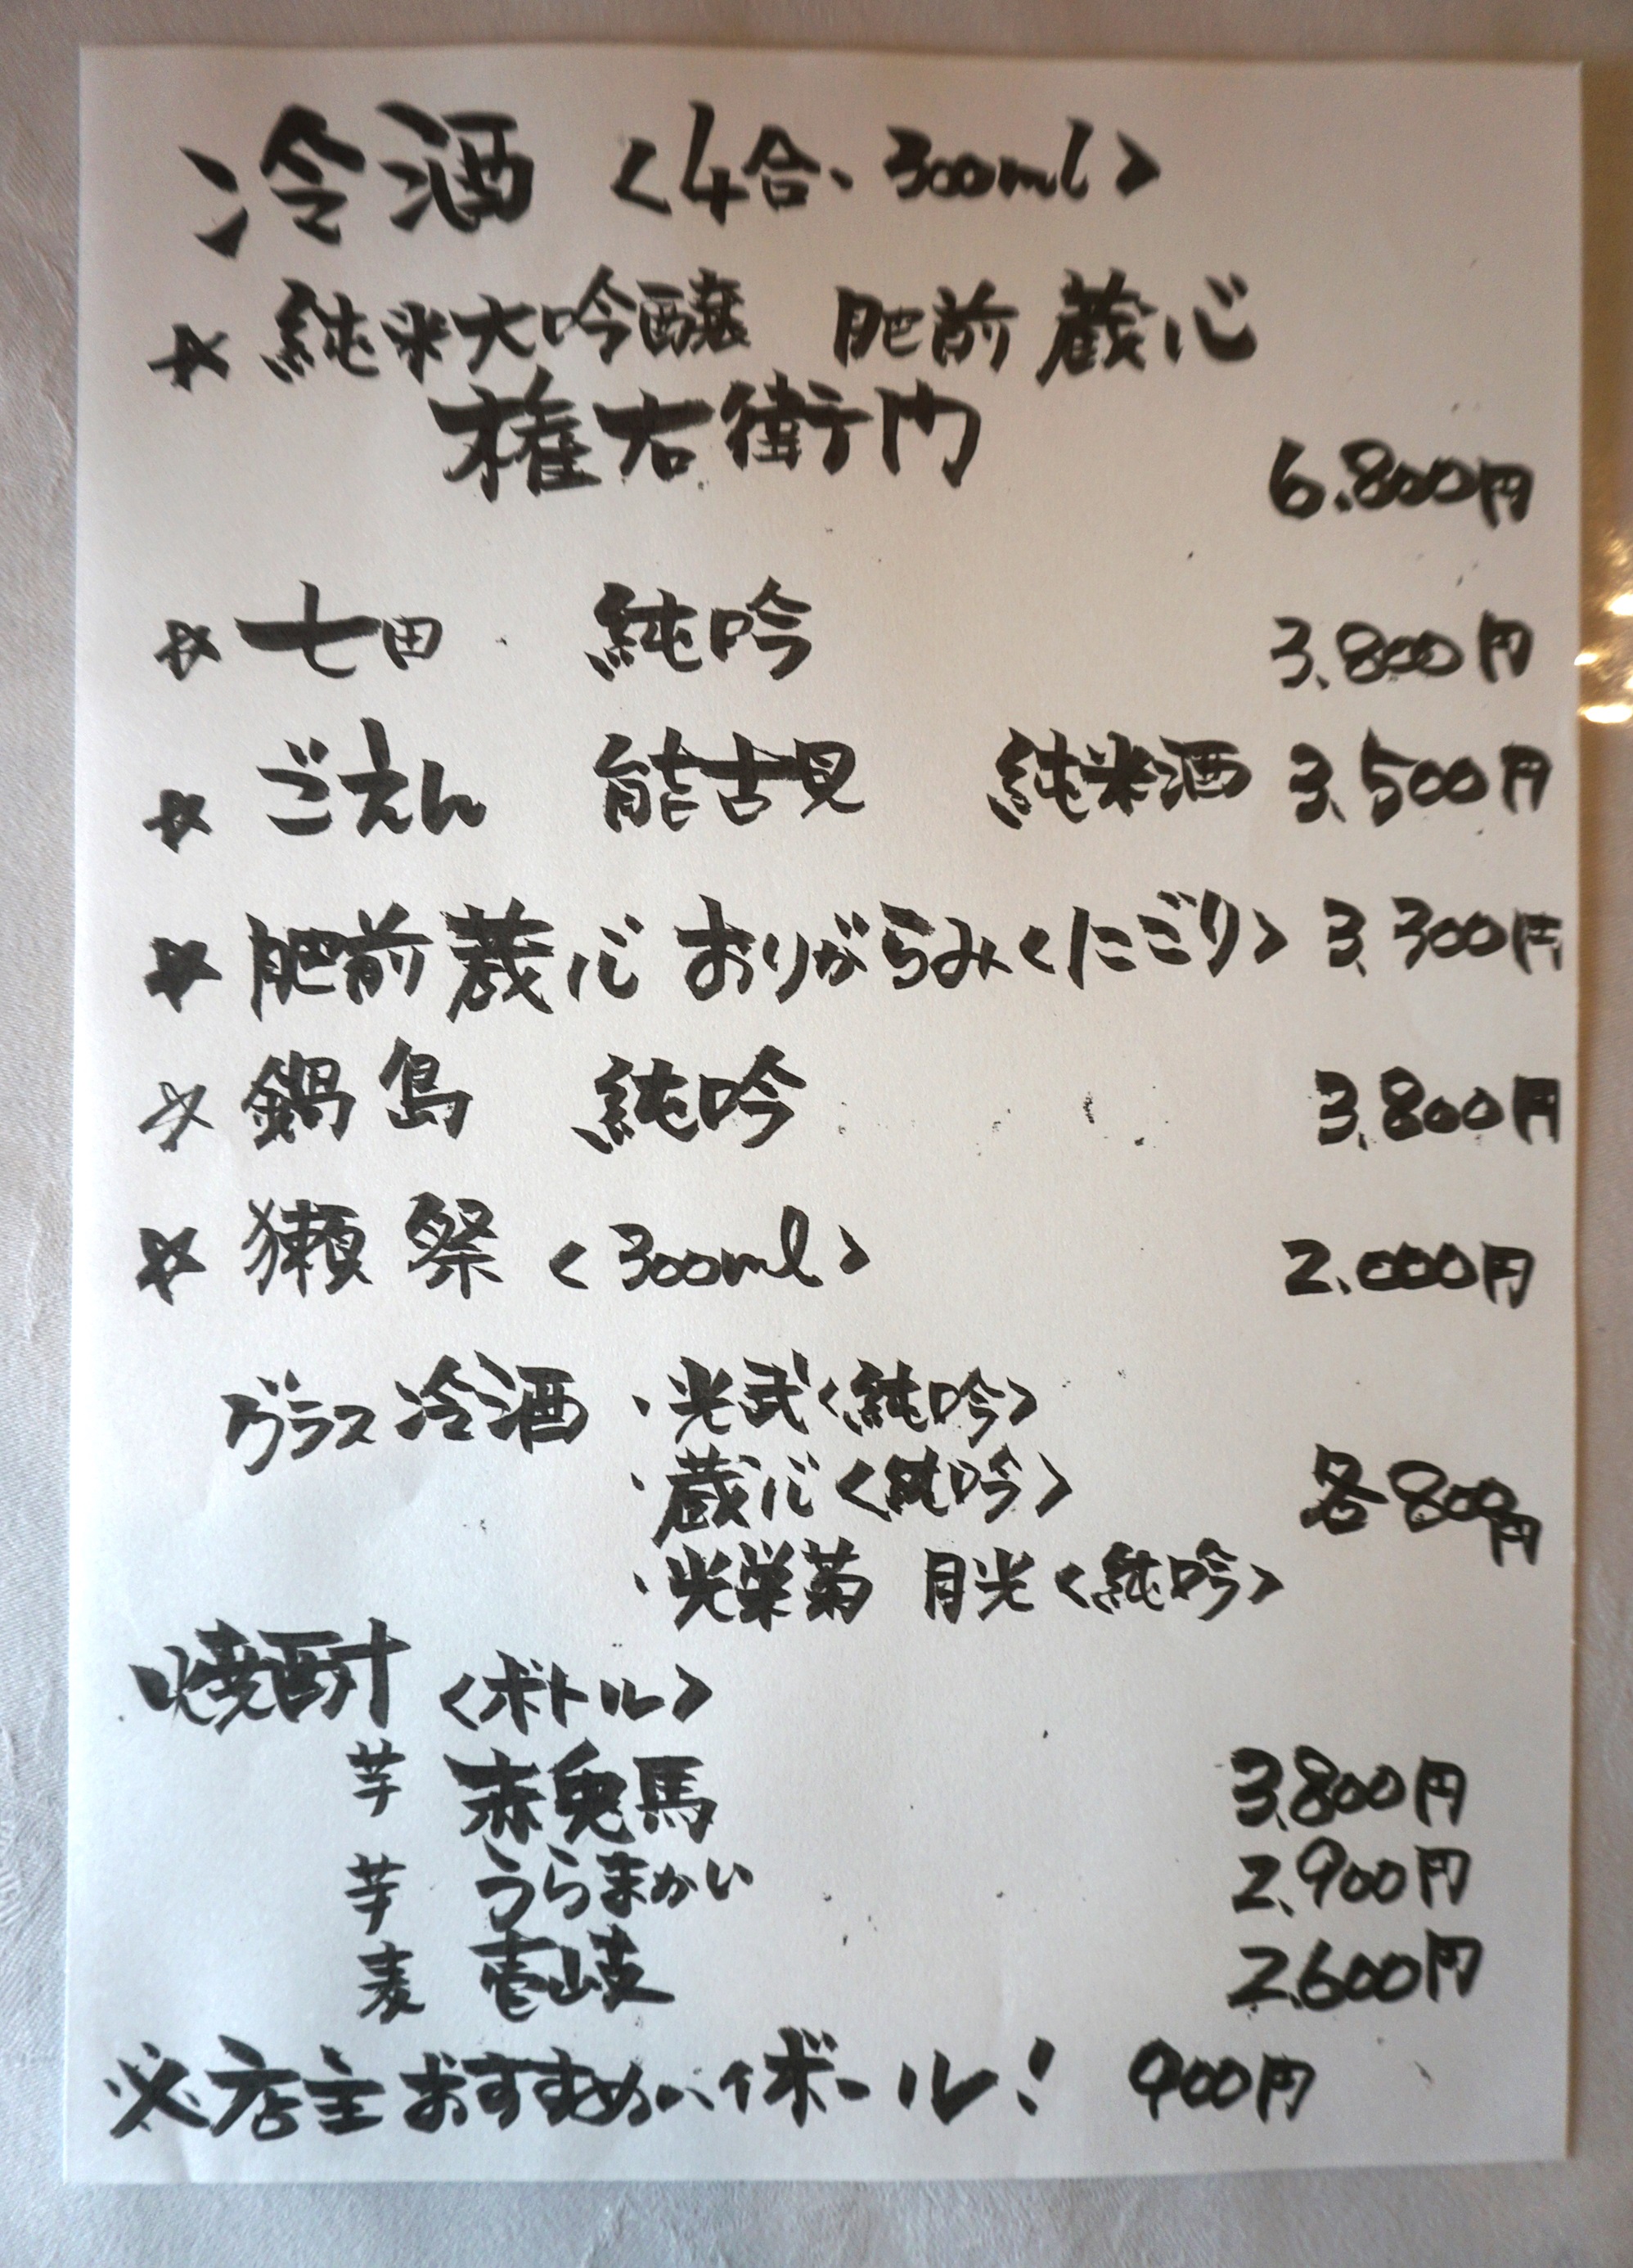 冷酒 <4合、300ml>
☆ 純米大吟醸 肥前蔵心
権右衛門 6.800円
☆ 七田 純吟 3.800円
☆ ごえん 能古見 純米酒 3.500円
☆ 肥前蔵心 おりがらみ<にごり> 3.300円
☆ 鍋島 純吟 3.800円
☆ 獺祭 <300ml> 2.000円
グラス冷酒 ・光武<純吟>
・蔵心<純吟> 各800円
・光栄菊 月光<純吟>
焼酎 <ボトル>
芋 赤兎馬 3.800円
芋 うらまかい 2.900円
麦 壱岐 2.600円
※店主おすすめハイボール! 900円